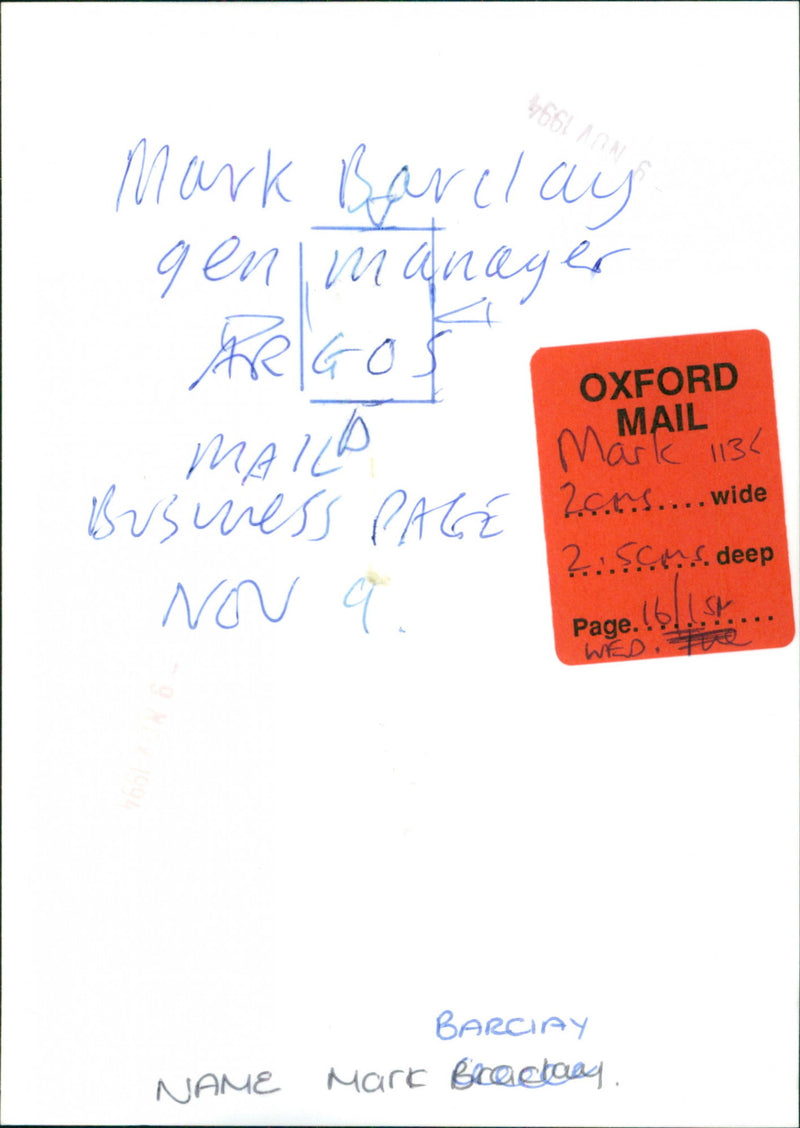 9 NOV 1994
Mark Barclay
gen manager
ARGOS
MAIL
BUSINESS PAGE
NOV 9.
OXFORD
MAIL
Mark
2cms wide
2.5cms deep
Page. 16/1st
WED. Tue
- 9 NOV 1994
BARCLAY
NAME Mark